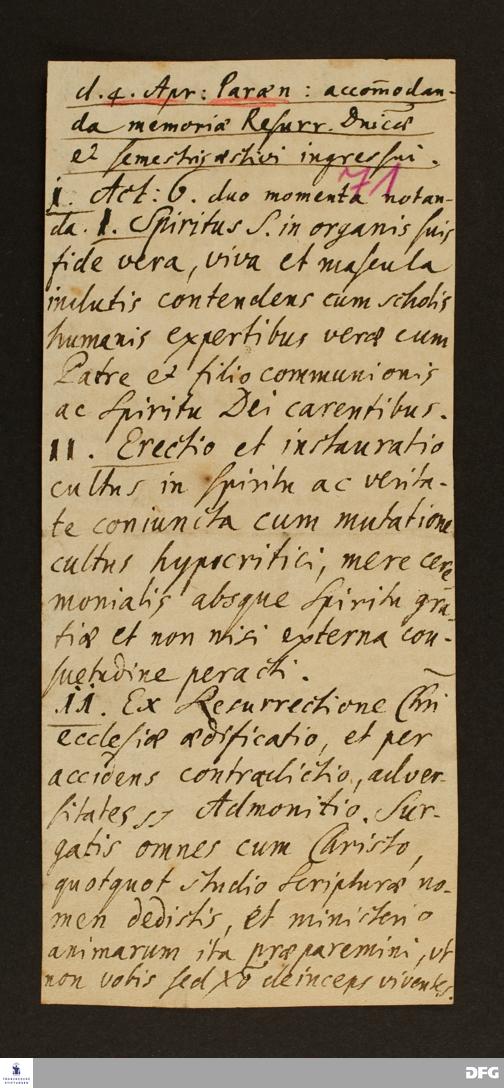 d. 4. Apr: Paræn: accom̄odan-
da memoriæ Resurr. Dnicæ
et semestris æstivi ingressui.
i. Act: 6. duo momenta notan-
71
da. I. Spiritus S. in organis suis
fide vera, viva et mascula
indutis contendens cum scholis
humanis expertibus veræ cum
Patre et filio communionis
ac Spiritu Dei carentibus.
II. Erectio et instauratio
cultus in Spiritu ac verita-
te coniuncta cum mutatione
cultus hypocritici, mere cere
monialis absque Spiritu gra-
tiæ et non nisi externa con-
suetudine peracti.
ii. Ex Resurrectione Chri
ecclesiæ ædificatio, et per
accidens contradictio, adver-
sitates Admonitio. Sur-
gatis omnes cum Christo,
quotquot studio Scripturæ no-
men dedistis, et ministerio
animarum ita præparemini, ut
non vobis sed Xo deinceps viventes.
FRANCKESCHE STIFTUNGEN
DFG